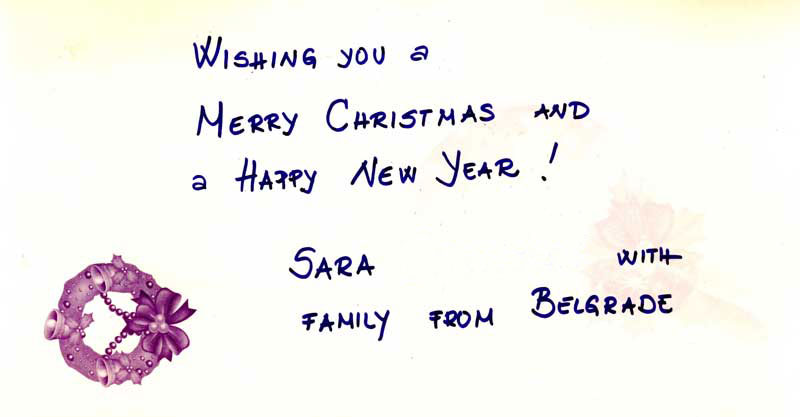 Wishing you a
Merry Christmas and
a Happy New Year!
Sara with
family from Belgrade